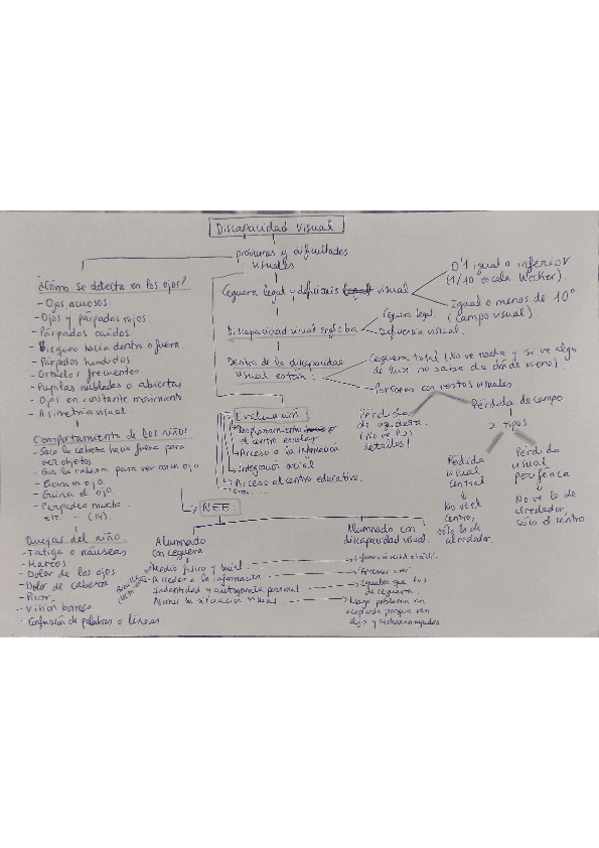 Discapacidad visual
problemas y dificultades
visuales
¿Cómo se detecta en los ojos?
- Ojos acuosos
- Ojos y párpados rojos.
- Párpados caídos.
- hacia dentro o fuera
- Párpados hundidos
- frecuentes
- Pupilas nubladas o abiertas
- Ojos en constante movimiento
- Asimetría visual
Comportamiento de los niños
- la cabeza hacia fuera para
ver objetos
- Gira la cabeza para ver con un ojo
- un ojo.
- Guiña el ojo.
- Parpadea mucho.
etc. - (14).
Quejas del niño
- Fatiga o náuseas
- Mareos
- Dolor de los ojos
- Dolor de cabeza
- Picor.
- Visión borrosa
- Confusión de palabras o líneas.
Ceguera legal y deficiencia visual
0'1 igual o inferior
(1/10 escala Wecker).
Igual o menos de 10°
(campo visual)
Discapacidad visual engloba
Ceguera legal.
Deficiencia visual.
Dentro de la discapacidad
visual están:
Ceguera total (No ve nada y si ve algo
de luz no sabe de dónde viene)
- Personas con restos visuales
Pérdida
de agudeza
(No ve los
detalles)
Pérdida de campo
2 tipos
Pérdida
visual
central
No ve el
centro,
sólo lo de
alrededor.
Pérdida
visual
periférica
No ve lo de
alrededor,
sólo el centro
Evaluación
Desplazamiento
el centro escolar
Acceso a la información
Integración social
Acceso al centro educativo.
NEE.
Alumnado
con ceguera
Medio físico y social
Acceder a la información
Identidad y autonomía personal
Asumir su situación visual
Alumnado con
discapacidad visual.
Igual que los
de ceguera.
problemas en
aceptarlo porque ven
algo y rechazan ayudas